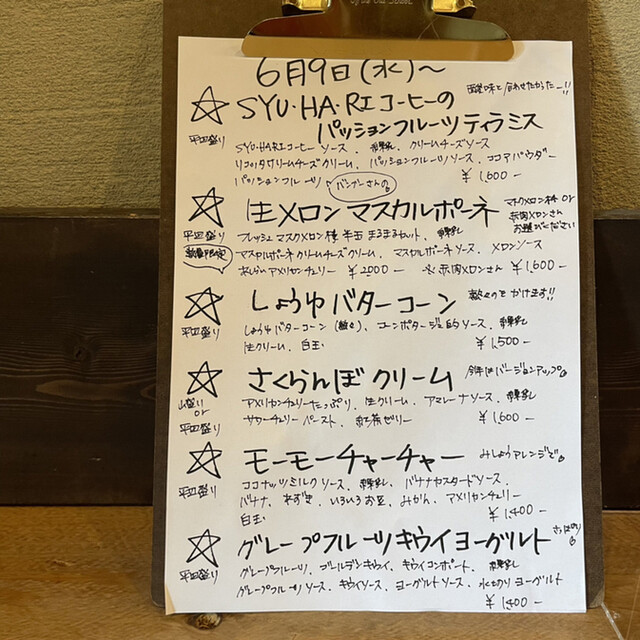 6月9日(水)〜
☆ SYU・HA・RIコーヒーの
パッションフルーツティラミス
平皿盛り
SYU・HARIコーヒーソース、練乳、クリームチーズソース
リコッタクリームチーズクリーム、パッションフルーツソース、ココアパウダー
パッションフルーツ ¥1,600-
☆ 生メロンマスカルポーネ
マスクメロン杯 or
赤肉メロンさん
お選びください
平皿盛り
数量限定
フレッシュマスクメロン様、練乳
マスカルポーネクリームチーズクリーム、マスカルポーネソース、メロンソース
アメリカンチェリー ¥2000- ※赤肉メロンさん ¥1,600-
☆ しょうゆバターコーン
かけます!!
平皿盛り
しょうゆバターコーン、コーンポタージュ的ソース、練乳
生クリーム、白玉 ¥1,500-
☆ さくらんぼクリーム
今年はバージョンアップ
山盛り
or
平皿盛り
アメリカンチェリーたっぷり、生クリーム、アマレーナソース、練乳
サワーチェリーペースト、紅茶ゼリー ¥1,600-
☆ モーモーチャーチャー
みしょうアレンジで
平皿盛り
ココナッツミルクソース、練乳、バナナカスタードソース、
バナナ、あずき、いろいろお豆、みかん、アメリカンチェリー
白玉 ¥1,400-
☆ グレープフルーツキウイヨーグルト
さっぱり
平皿盛り
グレープフルーツ、ゴールデンキウイ、キウイコンポート、練乳
グレープフルーツソース、キウイソース、ヨーグルトソース、水切りヨーグルト
¥1,400-